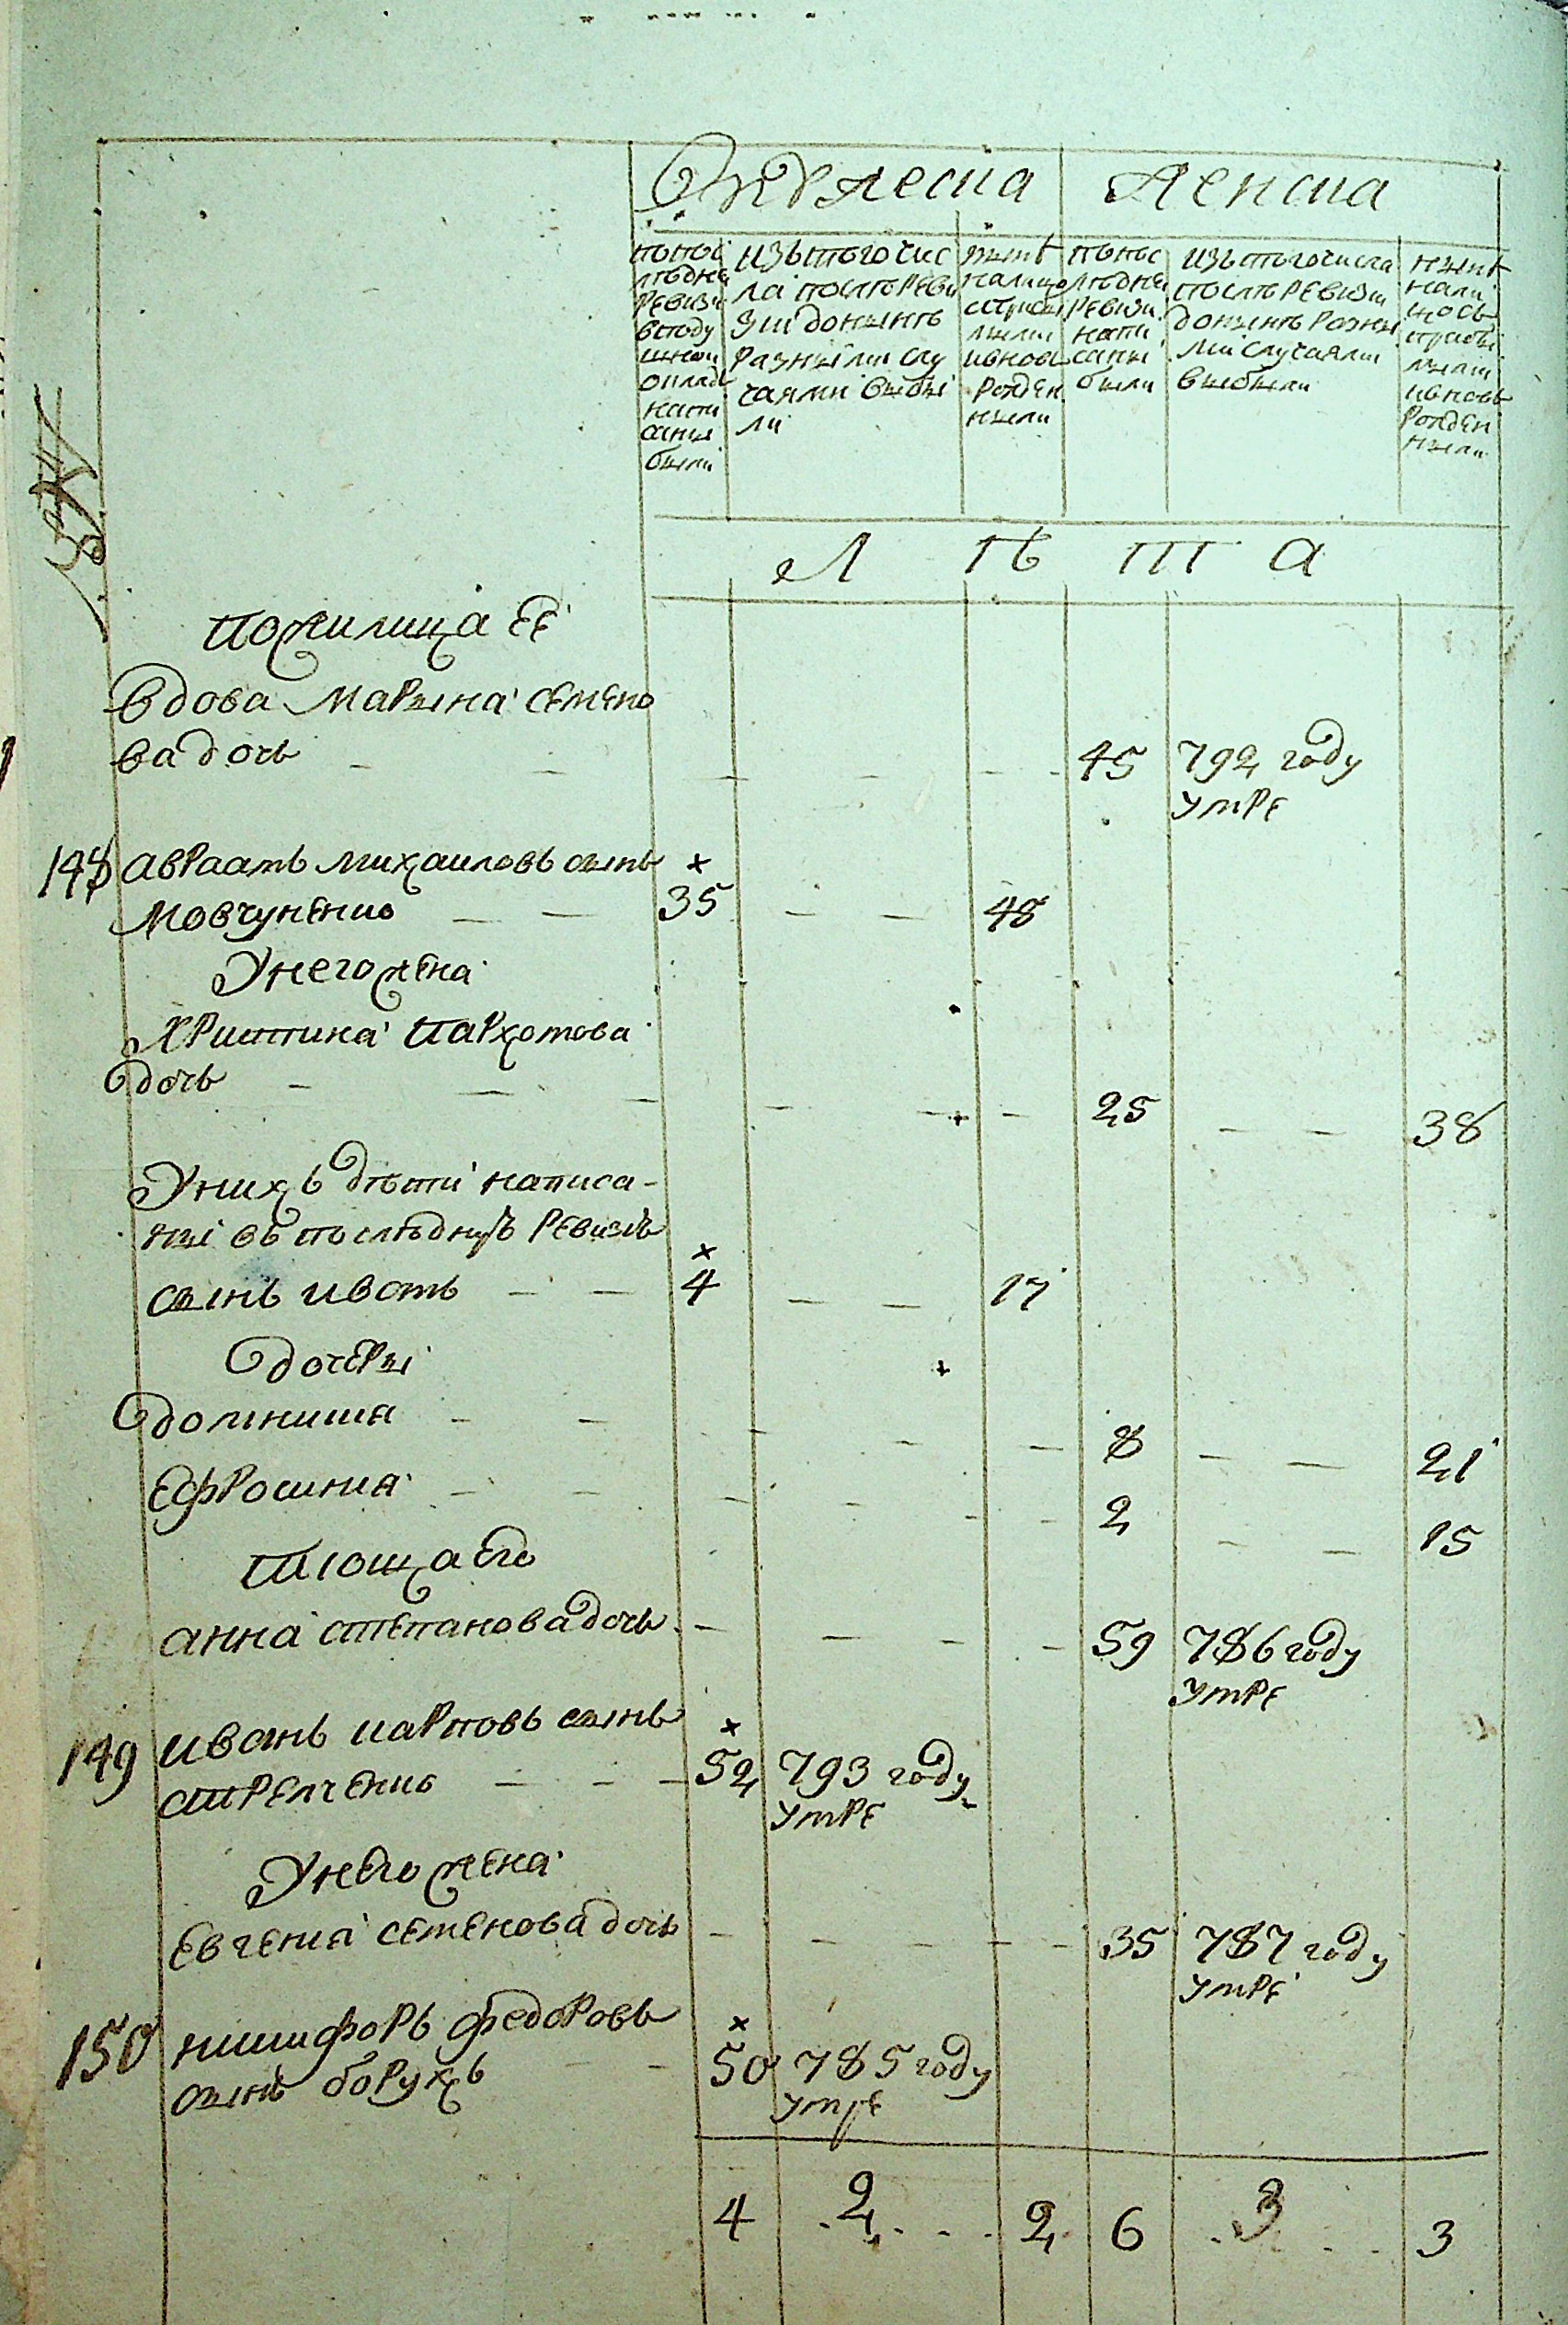 Мужеска Женска
по пос
лѣдней
ревизи
в поду
шном
окладѣ
напи
саны
были
изъ того чис
ла послѣ реви
зии донынѣ
разными слу
чаями выбы
ли
нынѣ
налицо
съ прибы
лыми
и внов
рожден
ными
по пос
лѣдней
ревизи
напи
саны
были
изъ того числа
послѣ ревизи
донынѣ разны
ми случаями
выбыли
нынѣ
нали
цо съ
прибы
лыми
и вновь
рожден
ными
Л ѣ т а
вдова марына семено
ва дочь 45 792 году
умре
148 авраамъ михаиловъ сынъ ×
мовчуненко 35 48
У него жена
Христина пархомова
дочь 25 38
У нихъ дѣти написа-
ны въ последнуѣ ревизіѣ
×
сынъ иванъ 4 17
дочеры
домникия 8 21
ефросиния 2 15
тіоща его
анна степанова дочь 59 786 году
умре
149 иванъ карповъ сынъ ×
стрелченко 52 793 году
умре
У него жена
евгения семенова дочь 35 787 году
умре
150 никифоръ федоровъ ×
сынъ борухъ 50 785 году
умре
4 2 2 6 3 3